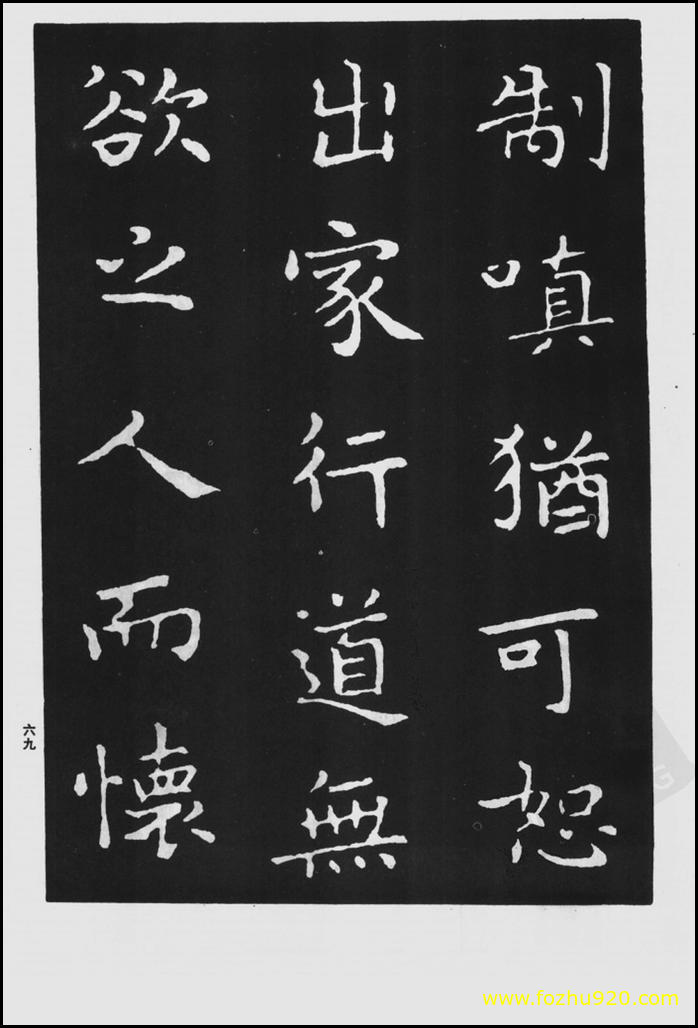 制嗔猶可恕
出家行道無
欲之人而懷
六九
www.fozhu920.com